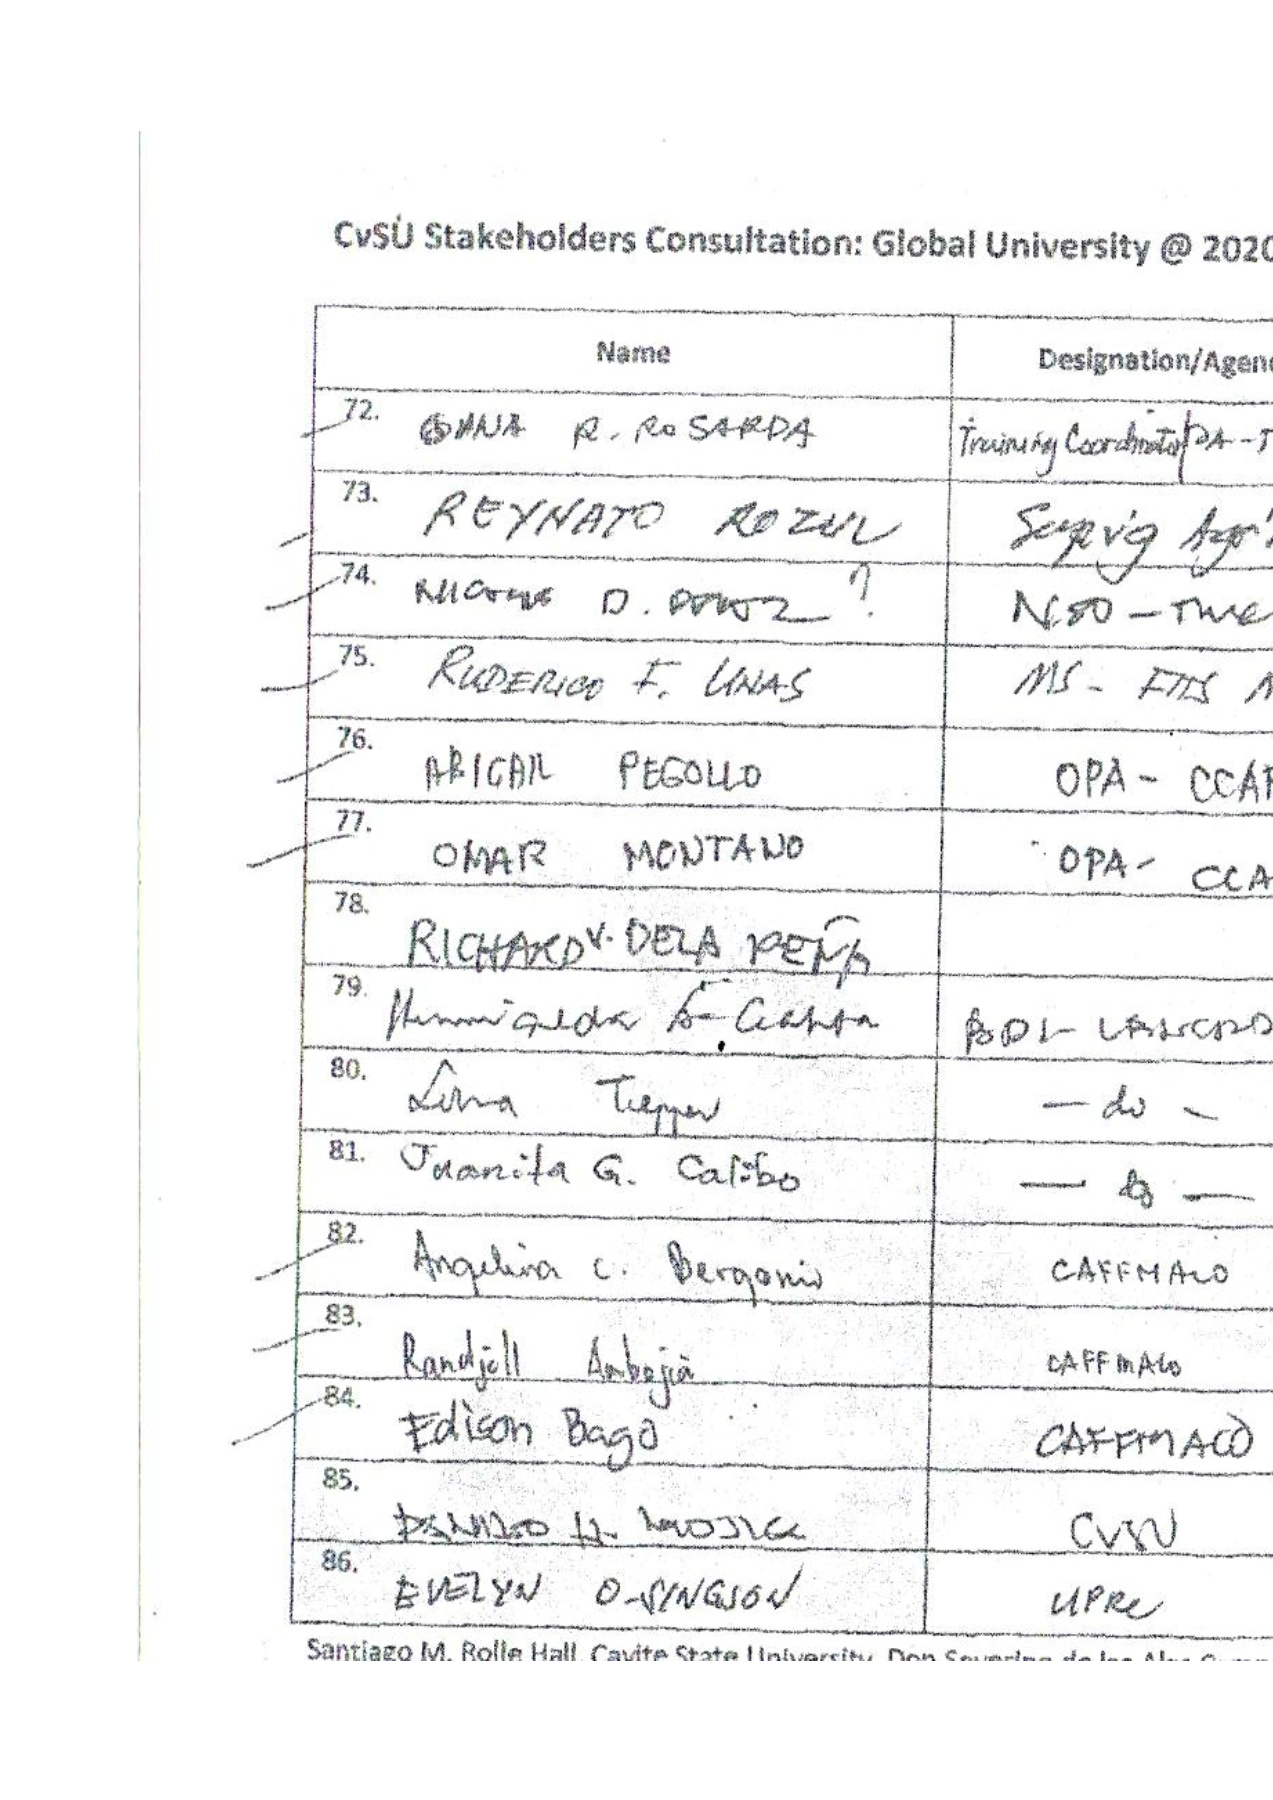 CvSU Stakeholders Consultation: Global University @ 2020
Name Designation/Agen
72. R. ROSARDA Training Coordinator/DA-T
73. REYNATO ROZUL Supv'g Agri
74. D. ?
75. RUDERICO F. UNAS MS-
76. ABIGAIL PEGOLLO OPA - CCAF
77. OMAR MONTANO OPA- CCA
78. RICHARD V. DELA PEÑA
79.
80. - do -
81. Juanita G. Calibo — do —
82. Angelina C. Bergonio CAFFMACO
83. Randjell Ambojia CAFFMACO
84. Edison Bago CAFFMACO
85. DANILO N. MOJICA CVSU
86. EVELYN O-SINGSON
Santiago M. Rolle Hall, Cavite State University, Don Severino de las Alas